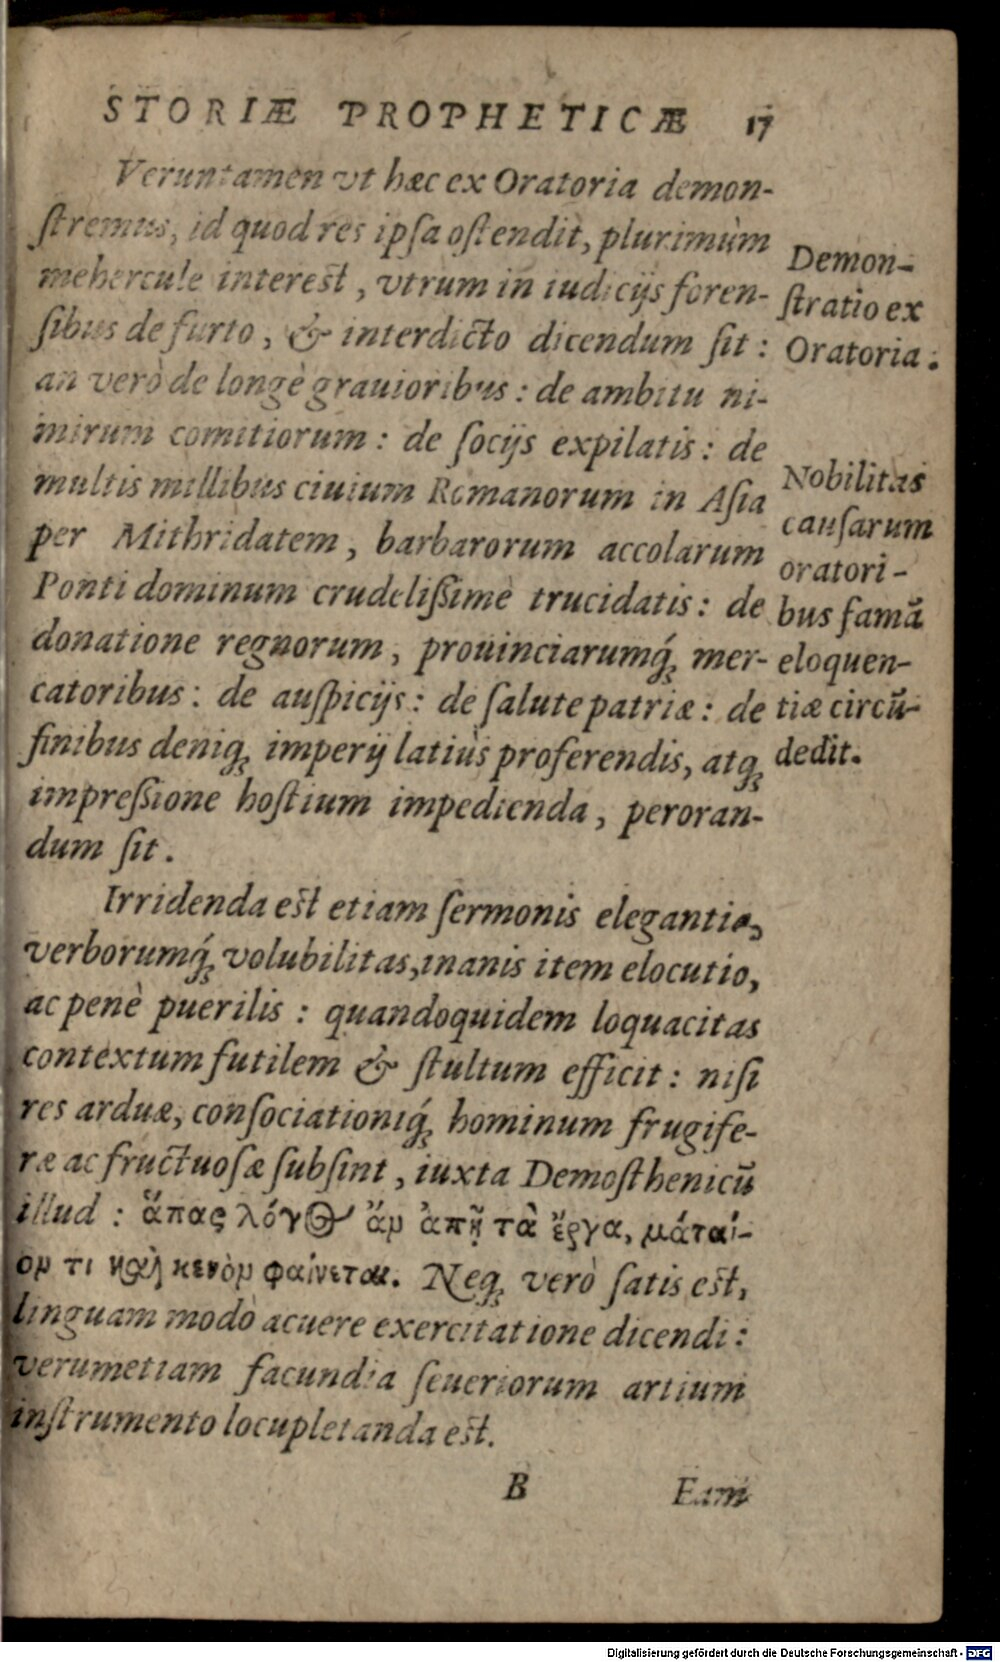 STORIÆ PROPHETICÆ 17
Veruntamen vt hæc ex Oratoria demon-
ſtremus, id quod res ipſa oſtendit, plurimùm
mehercule intereſt, vtrum in iudicijs foren-
ſibus de furto, & interdicto dicendum ſit:
an verò de longè grauioribus: de ambitu ni-
mirum comitiorum: de ſocijs expilatis: de
multis millibus ciuium Romanorum in Aſia
per Mithridatem, barbarorum accolarum
Ponti dominum crudeliſſimè trucidatis: de
donatione regnorum, prouinciarumq́; mer-
catoribus: de auſpicijs: de ſalute patriæ: de
finibus deniq; imperij latiùs proferendis, atq;
impreſſione hoſtium impedienda, peroran-
dum ſit.
Demon-
ſtratio ex
Oratoria.
Nobilitas
cauſarum
oratori-
bus famã
eloquen-
tiæ circũ-
dedit.
Irridenda eſt etiam ſermonis elegantia,
verborumq́; volubilitas, inanis item elocutio,
ac penè puerilis: quandoquidem loquacitas
contextum futilem & ſtultum efficit: niſi
res arduæ, conſociationiq́; hominum frugife-
ræ ac fructuoſæ ſubſint, iuxta Demoſthenicũ
illud: ἅπας λόγος ἂν ἀπῇ τὰ ἔργα, μάται-
ον τι καὶ κενὸν φαίνεται. Neq; verò ſatis eſt,
linguam modò acuere exercitatione dicendi:
verumetiam facundia ſeueriorum artium
inſtrumento locupletanda eſt.
B Eam
Digitalisierung gefördert durch die Deutsche Forschungsgemeinschaft - DFG